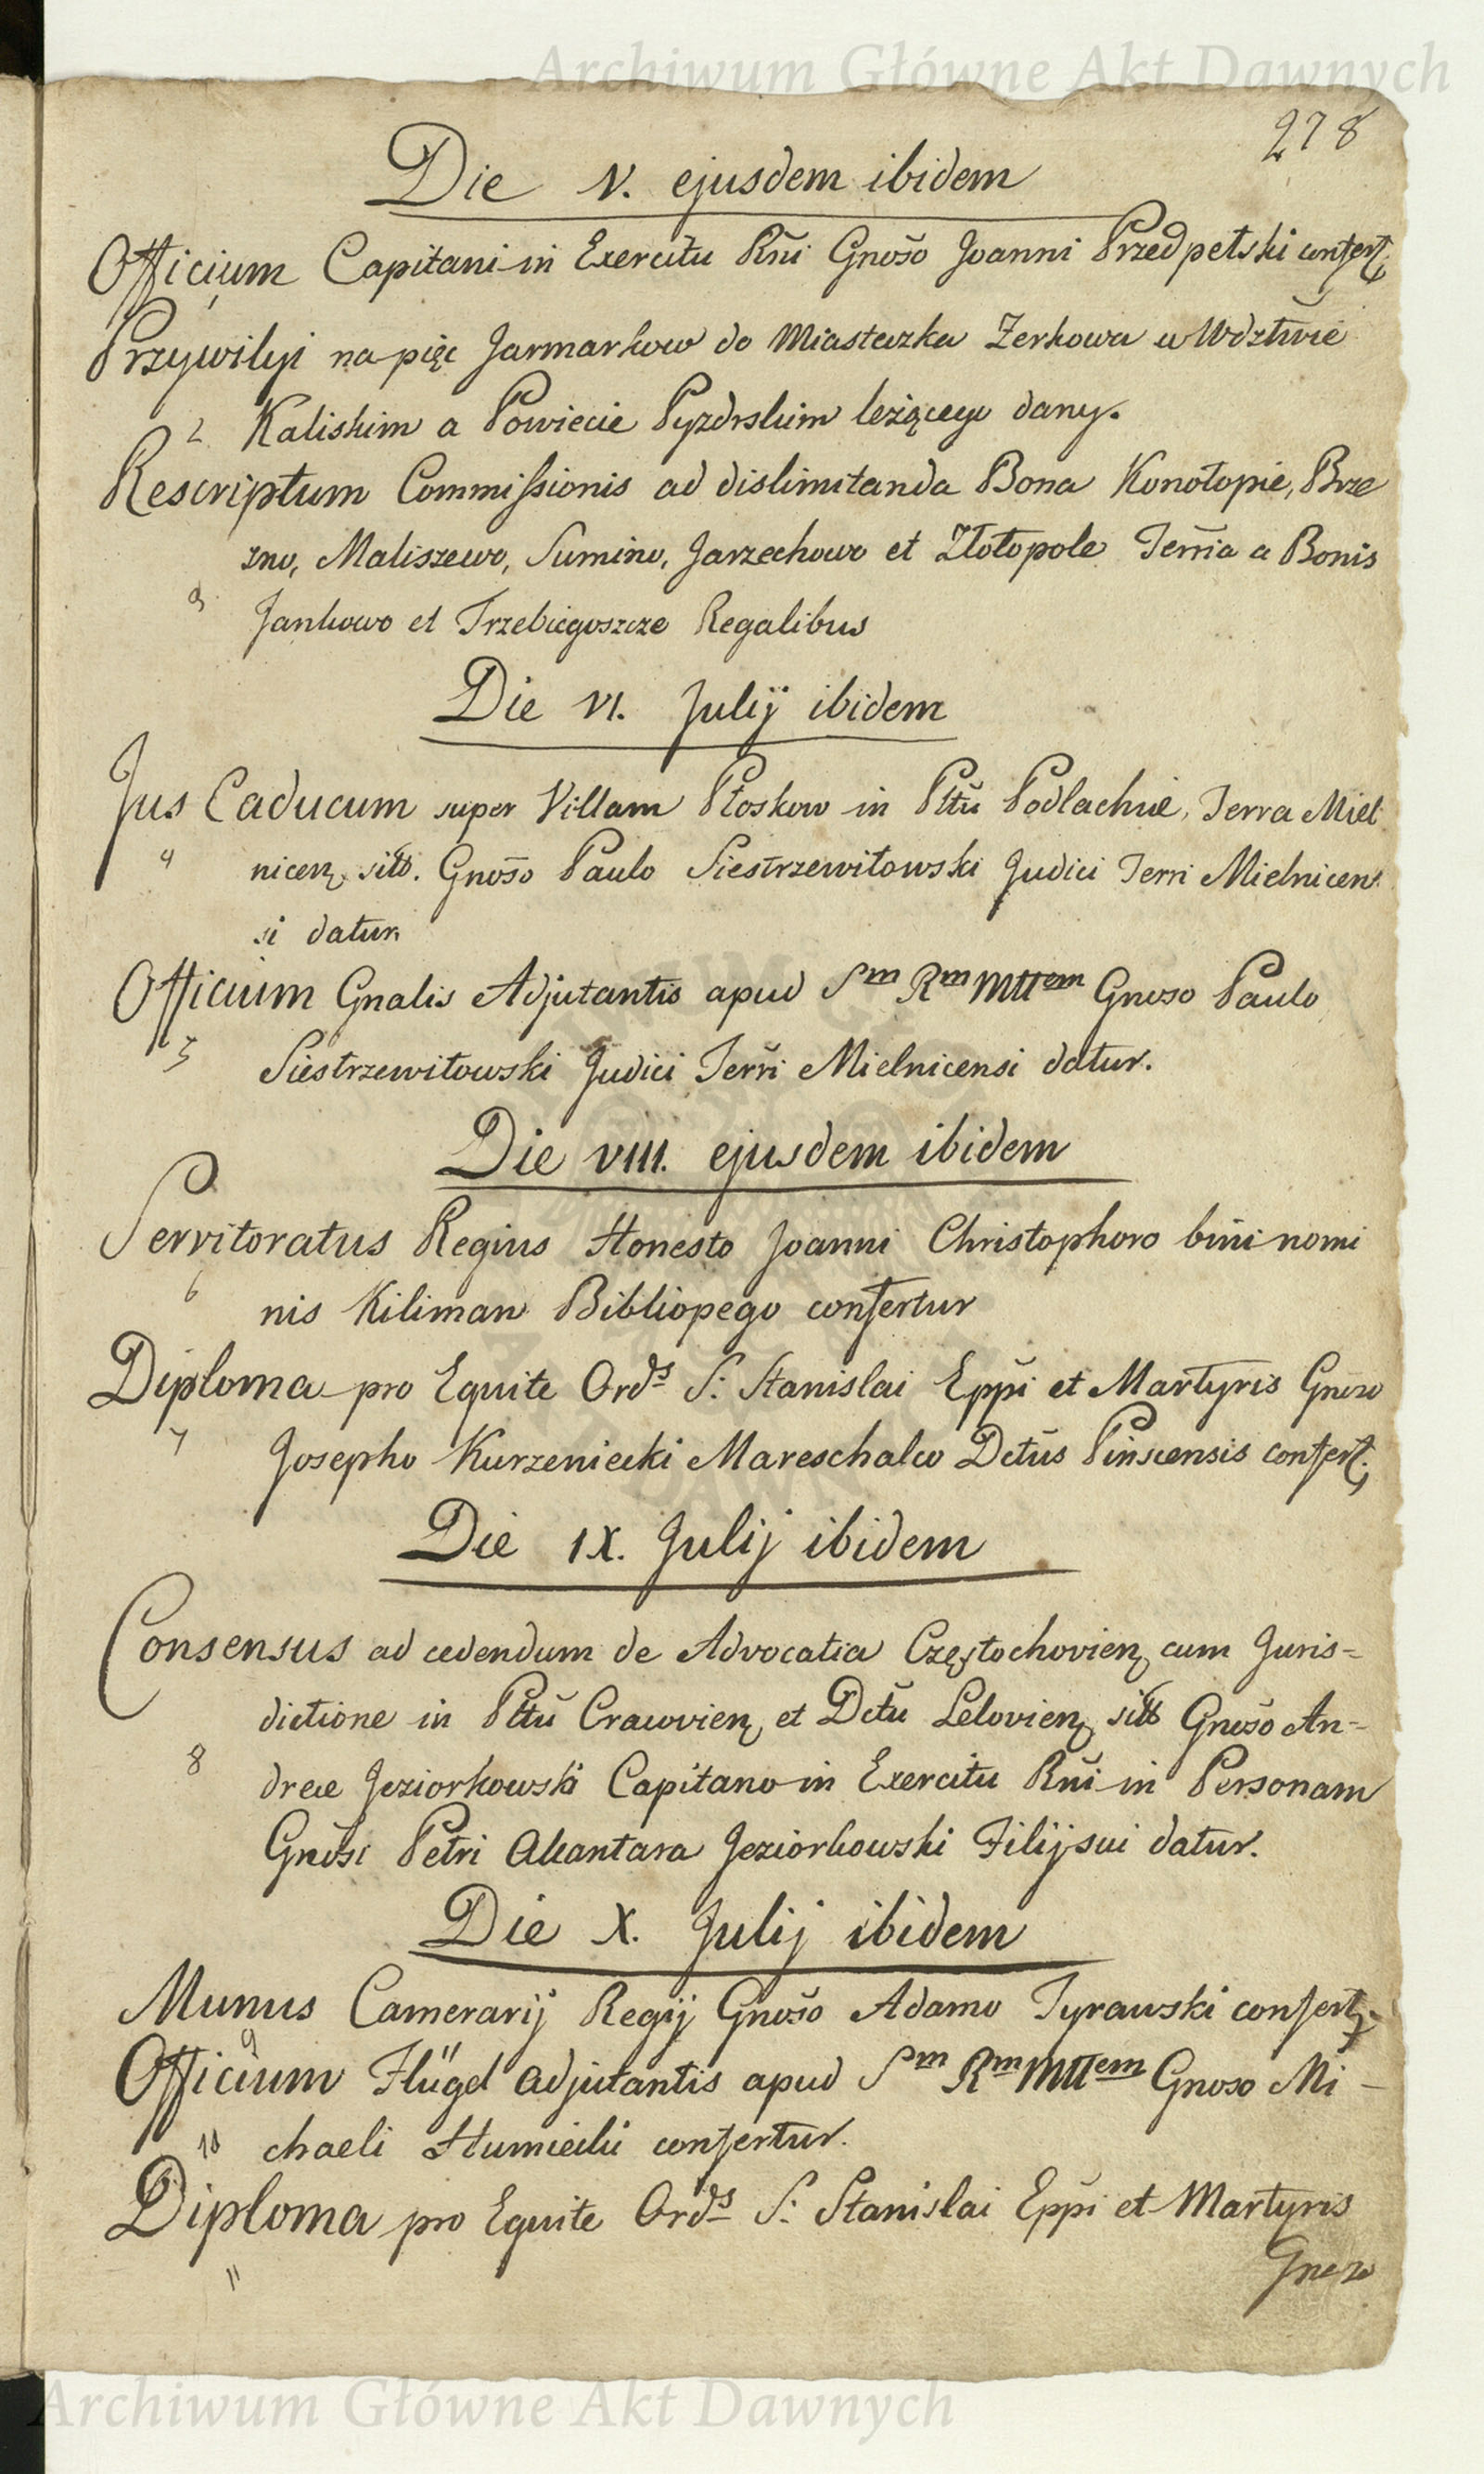 Archiwum Główne Akt Dawnych
278
Die V. ejusdem ibidem
Officium Capitani in Exercitu Rñi Gnõso Joanni Przedpełski confert.
1
Przywilyi na pięc Jarmarkow do Miasteczka Zerkowa w Wdztwie
2 Kaliskim a Powiecie Pyzdrskim leżącego dany.
Rescriptum Commissionis ad dislimitanda Bona Konotopie, Brze
zno, Maliszewo, Sumino, Jarzechowo et Złotopole Terr̃ia a Bonis
3 Jankowo et Trzebiegoszcze Regalibus
Die VI. Julij ibidem
Jus Caducum super Villam Płoskow in Pltũ Podlachiæ, Terra Miel
4 nicen. sitt. Gnõso Paulo Siestrzewitowski Judici Terri Mielnicen
si datur.
Officium Gnalis Adjutantis apud Sm Rm Mttem Gnoso Paulo
5 Siestrzewitowski Judici Terr̃i Mielnicensi datur.
Die VIII. ejusdem ibidem
Servitoratus Regius Honesto Joanni Christophoro bini nomi
6 nis Kiliman Bibliopego confertur
Diploma pro Equite Ords S. Stanislai Epp̃i et Martyris Gnoso
7 Josepho Kurzeniecki Mareschalco Dctũs Pinscensis confert.
Die IX. Julij ibidem
Consensus ad cedendum de Advocatia Częstochovien. cum Juris=
dictione in Pltũ Cracovien. et Dctũ Lelovien. sitt Gnõso An=
8 dreæ Jeziorkowski Capitano in Exercitu Rñi in Personam
Gnõsi Petri Alcantara Jeziorkowski Filij sui datur.
Die X. Julij ibidem
Munus Camerarij Regij Gnõso Adamo Tyrawski confert.
9
Officium Flügel Adjutantis apud Sm Rm Mttem Gnoso Mi –
10 chaeli Humiecki confertur.
Diploma pro Equite Ords S. Stanislai Epp̃i et Martyris
11
Gnoso
Archiwum Główne Akt Dawnych